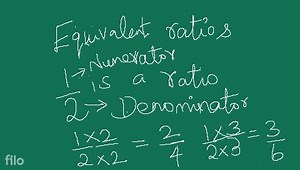 Equivalent ratios
1 → Numerator
is a ratio
2 → Denominator
1×2 / 2×2 = 2 / 4 1×3 / 2×3 = 3 / 6
filo